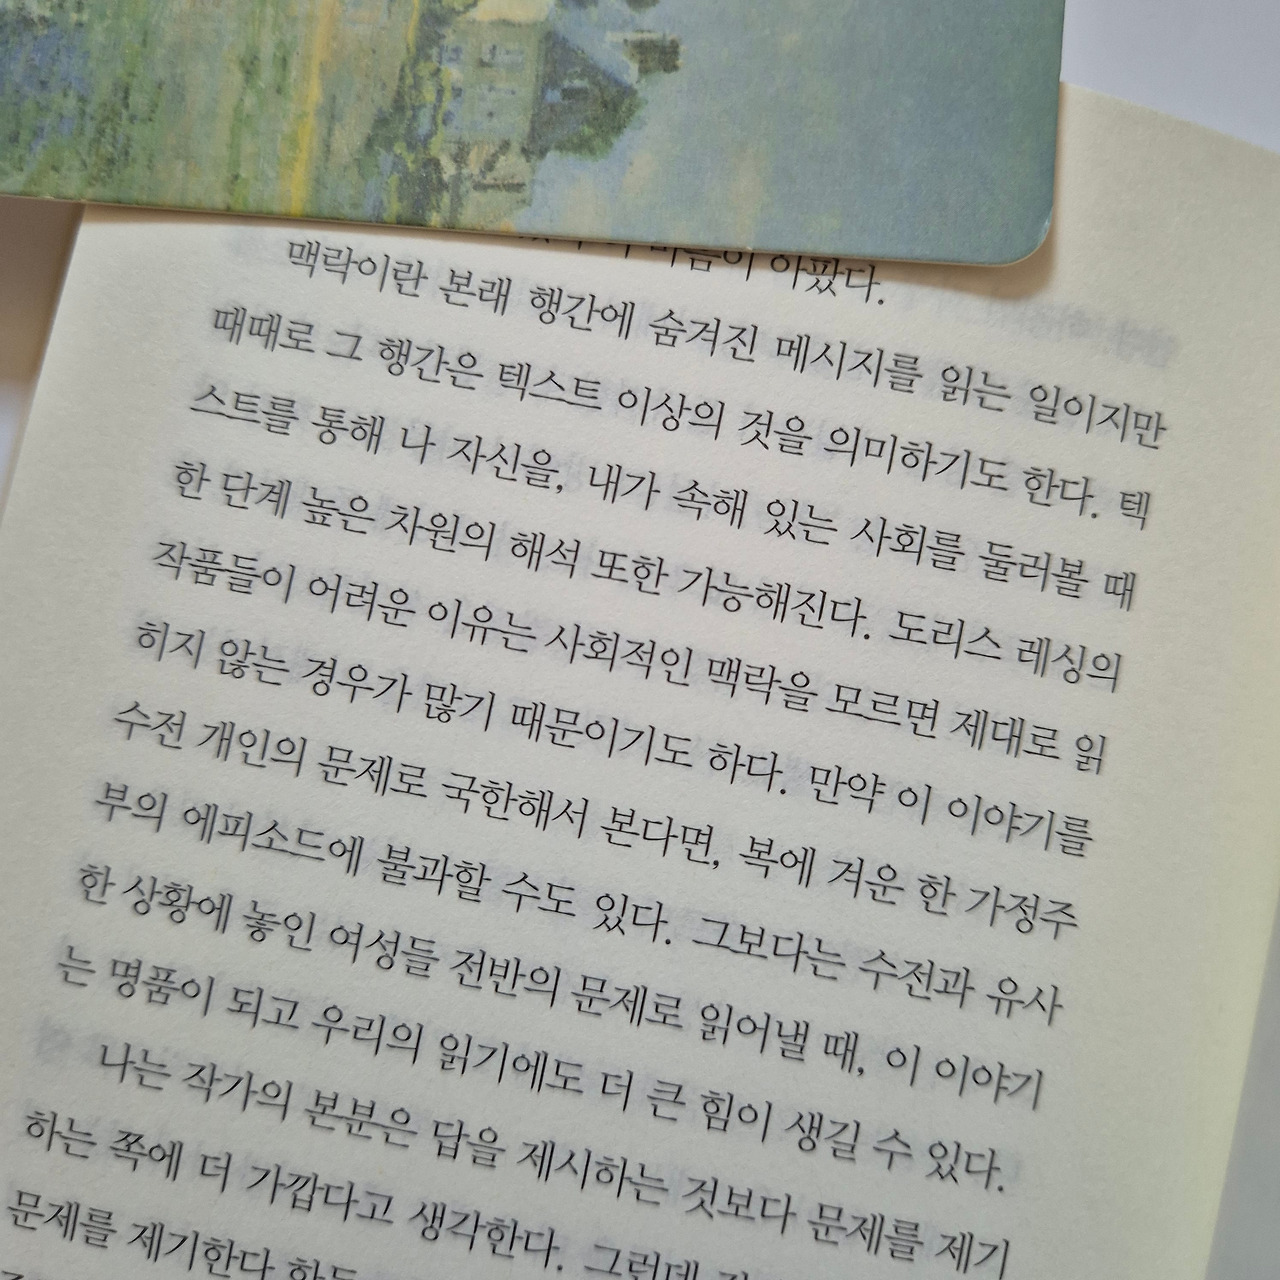 마음이 아팠다.
맥락이란 본래 행간에 숨겨진 메시지를 읽는 일이지만
때때로 그 행간은 텍스트 이상의 것을 의미하기도 한다. 텍
스트를 통해 나 자신을, 내가 속해 있는 사회를 둘러볼 때
한 단계 높은 차원의 해석 또한 가능해진다. 도리스 레싱의
작품들이 어려운 이유는 사회적인 맥락을 모르면 제대로 읽
히지 않는 경우가 많기 때문이기도 하다. 만약 이 이야기를
수전 개인의 문제로 국한해서 본다면, 복에 겨운 한 가정주
부의 에피소드에 불과할 수도 있다. 그보다는 수전과 유사
한 상황에 놓인 여성들 전반의 문제로 읽어낼 때, 이 이야기
는 명품이 되고 우리의 읽기에도 더 큰 힘이 생길 수 있다.
나는 작가의 본분은 답을 제시하는 것보다 문제를 제기
하는 쪽에 더 가깝다고 생각한다. 그런데
문제를 제기한다